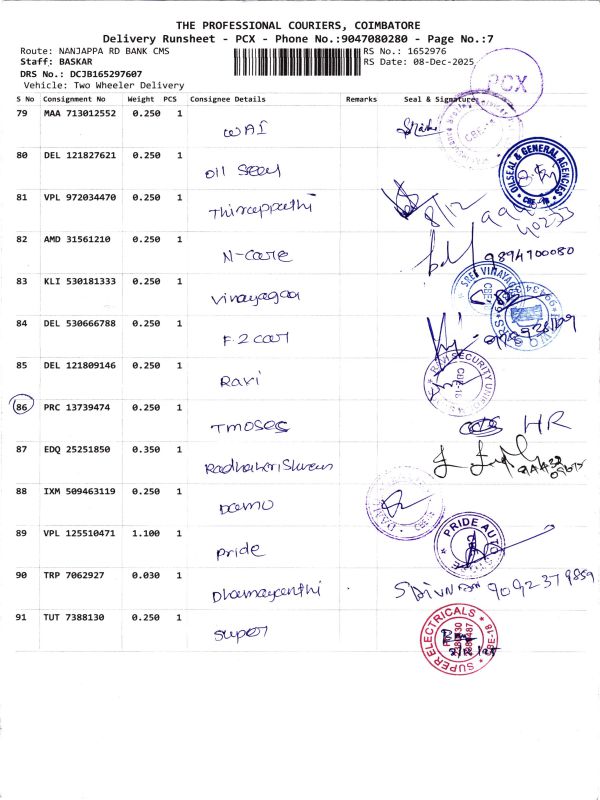 THE PROFESSIONAL COURIERS, COIMBATORE
Delivery Runsheet - PCX - Phone No.:9047080280 - Page No.:7
Route: NANJAPPA RD BANK CMS RS No.: 1652976
Staff: BASKAR RS Date: 08-Dec-2025
DRS No.: DCJB165297607
Vehicle: Two Wheeler Delivery
PCX
S No Consignment No Weight PCS Consignee Details Remarks Seal & Signature
79 MAA 713012552 0.250 1
WAI
CBE-18
80 DEL 121827621 0.250 1
Oil Seal
OILSEAL & GENERAL AGENCIES
CBE-18
81 VPL 972034470 0.250 1
Thiruppathi
8/12
82 AMD 31561210 0.250 1
N-care
9894700080
83 KLI 530181333 0.250 1
Vinayagaa
SREE VINAYAGA
84 DEL 530666788 0.250 1
F.2 cart
85 DEL 121809146 0.250 1
Ravi
RAVI SECURITY
CBE-18
86 PRC 13739474 0.250 1
Tmoses
HR
87 EDQ 25251850 0.350 1
88 IXM 509463119 0.250 1
Damu
89 VPL 125510471 1.100 1
pride
PRIDE AUTO
90 TRP 7062927 0.030 1
Dhamayanthi
9092379859
91 TUT 7388130 0.250 1
Super
SUPER ELECTRICALS
CBE-18